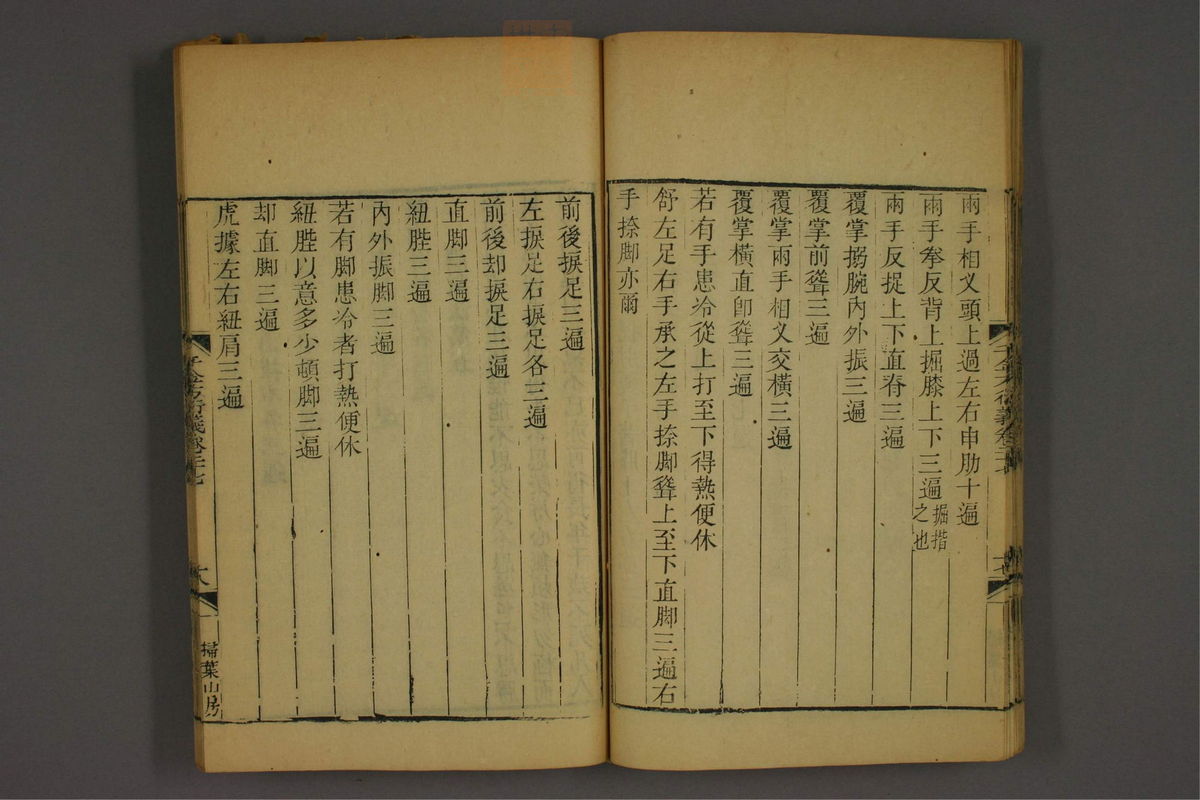 兩手相义頭上過左右申肋十遍
兩手拳反背上掘膝上下三遍掘揩之也
兩手反捉上下直脊三遍
覆掌搦腕內外振三遍
覆掌前聳三遍
覆掌兩手相义交橫三遍
覆掌橫直卽聳三遍
若有手患冷從上打至下得熱便休
舒左足右手承之左手捺脚聳上至下直脚三遍右
手捺脚亦爾
前後捩足三遍
左捩足右捩足各三遍
前後却捩足三遍
直脚三遍
紐䏶三遍
內外振脚三遍
若有脚患冷者打熱便休
紐䏶以意多少頓脚三遍
却直脚三遍
虎據左右紐肩三遍
千金方衍義卷二十七
十八
掃葉山房